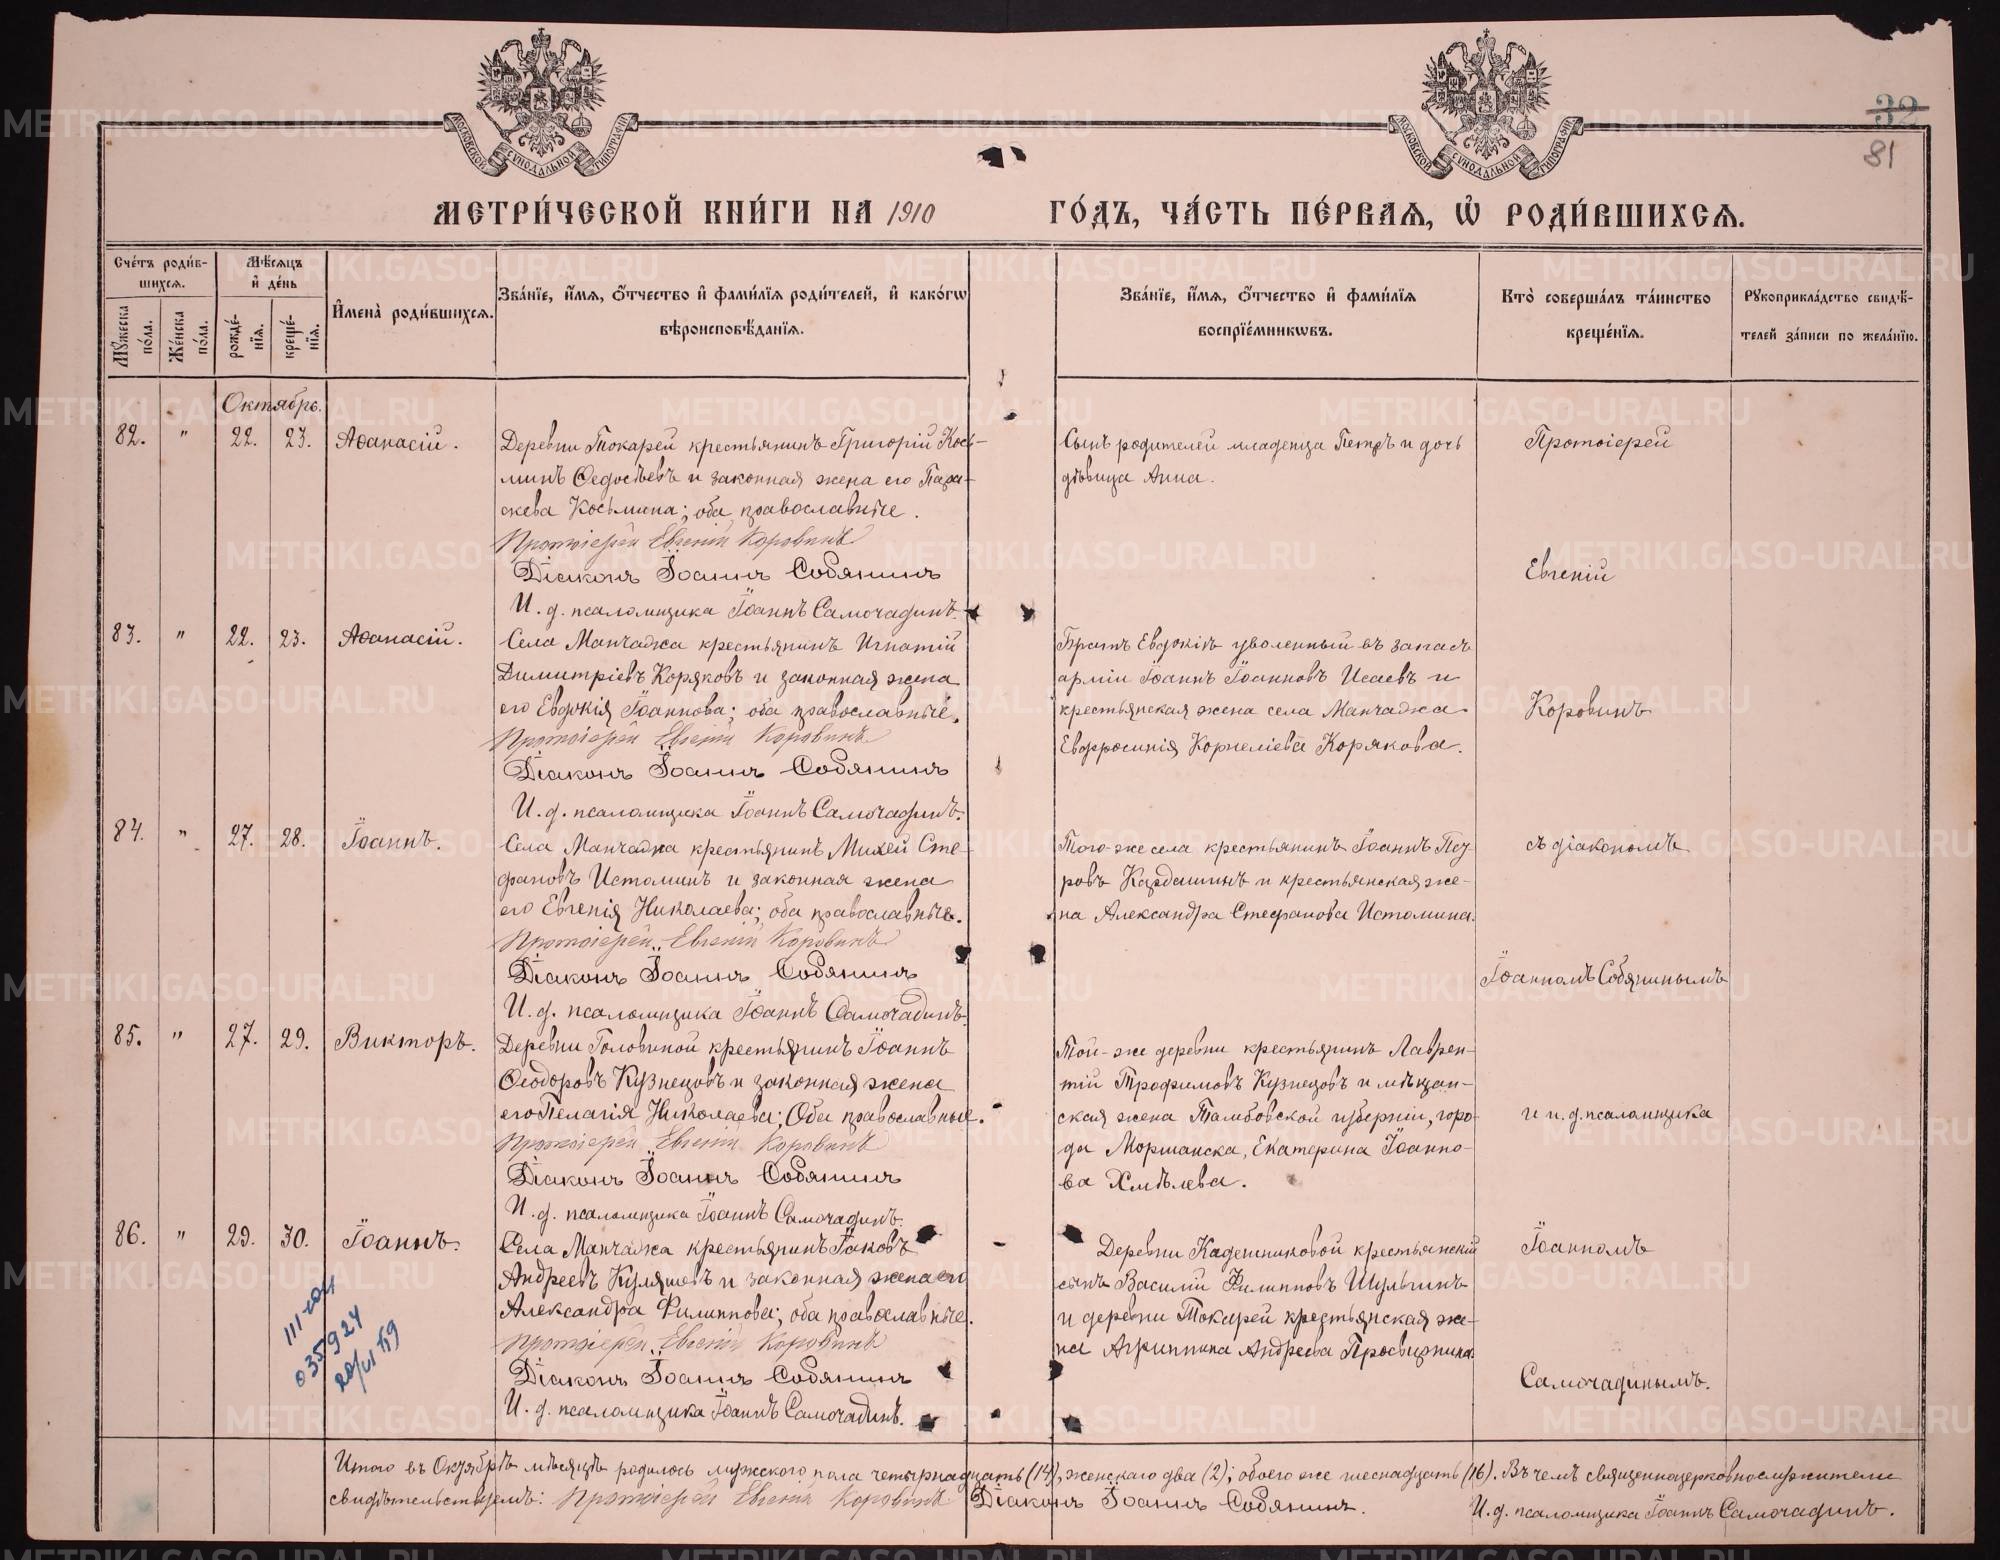 МОСКОВСКОЙ СѴНОДАЛЬНОЙ ТИПОГРАФІИ
МОСКОВСКОЙ СѴНОДАЛЬНОЙ ТИПОГРАФІИ
32
81
МЕТРИ́ЧЕСКОЙ КНИ́ГИ НА 1910 ГО́ДЪ, ЧА́СТЬ ПЕ́РВАѦ, Ѡ҆ РОДИ́ВШИХСѦ.
Сче́тъ роди́в-
шихсѧ.
Мꙋ́жеска по́ла.
Же́нска по́ла.
Мѣ́сѧцъ
и҆ де́нь
рожде́-нїѧ.
креще́-нїѧ.
И҆мена̀ роди́вшихсѧ.
Зва́нїе, и҆́мѧ, ѻ҆́тчество и҆ фами́лїѧ роди́телей, и҆ како́гѡ
вѣроисповѣ́данїѧ.
Зва́нїе, и҆́мѧ, ѻ҆́тчество и҆ фами́лїѧ
воспрїе́мникѡвъ.
Кто̀ соверша́лъ та́инство
креще́нїѧ.
Рꙋкоприкла́дство свидѣ́-
телей за́писи по жела́нїю.
Октябрь.
82. " 22. 23. Аѳанасій.
Деревни Токарей крестьянинъ Григорій Кось-
минъ Ѳедосѣевъ и законная жена его Пара-
скева Косьмина; оба православные.
Протоіерей Евгеній Коровинъ
Діаконъ Іоаннъ Собянинъ
И. д. псаломщика Іоаннъ Самочадинъ.
Сынъ родителей младенца Петръ и дочь
дѣвица Анна.
Протоіерей
Евгеній
83. " 22. 23. Аѳанасій.
Села Манчажа крестьянинъ Игнатій
Димитріевъ Коряковъ и законная жена
его Евдокія Іоаннова; оба православные.
Протоіерей Евгеній Коровинъ
Діаконъ Іоаннъ Собянинъ
И. д. псаломщика Іоаннъ Самочадинъ.
Братъ Евдокіи уволенный въ запасъ
арміи Іоаннъ Іоанновъ Исаевъ и
крестьянская жена села Манчажа
Евфросинія Корнеліева Корякова.
Коровинъ
84. " 27. 28. Іоаннъ.
Села Манчажа крестьянинъ Михей Сте-
фановъ Истоминъ и законная жена
его Евгенія Николаева; оба православные.
Протоіерей Евгеній Коровинъ
Діаконъ Іоаннъ Собянинъ
И. д. псаломщика Іоаннъ Самочадинъ.
Того-же села крестьянинъ Іоаннъ Пет-
ровъ Кардашинъ и крестьянская же-
на Александра Стефанова Истомина.
съ діакономъ
Іоанномъ Собянинымъ
85. " 27. 29. Викторъ.
Деревни Головиной крестьянинъ Іоаннъ
Ѳеодоровъ Кузнецовъ и законная жена
его Пелагія Николаева; Оба православные.
Протоіерей Евгеній Коровинъ
Діаконъ Іоаннъ Собянинъ
И. д. псаломщика Іоаннъ Самочадинъ.
Той-же деревни крестьянинъ Лаврен-
тій Трофимовъ Кузнецовъ и мѣщан-
ская жена Тамбовской губерніи, горо-
да Моршанска, Екатерина Іоанно-
ва Хмѣлева.
и и. д. псаломщика
86. " 29. 30. Іоаннъ.
Села Манчажа крестьянинъ Іаковъ
Андреевъ Куляшевъ и законная жена его
Александра Филиппова; оба православные.
Протоіерей Евгеній Коровинъ
Діаконъ Іоаннъ Собянинъ
И. д. псаломщика Іоаннъ Самочадинъ.
Деревни Кадешниковой крестьянскій
сынъ Василій Филипповъ Шульгинъ
и деревни Токарей крестьянская же-
на Агриппина Андреева Просвирнина.
Іоанномъ
Самочадинымъ.
035924
Итого въ Октябрѣ мѣсяцѣ родилось мужского пола четырнадцать (14), женскаго два (2); обоего же шеснадцать (16). Въ чемъ священноцерковнослужители
свидѣтельствуемъ: Протоіерей Евгеній Коровинъ Діаконъ Іоаннъ Собянинъ. И. д. псаломщика Іоаннъ Самочадинъ.
METRIKI.GASO-URAL.RU